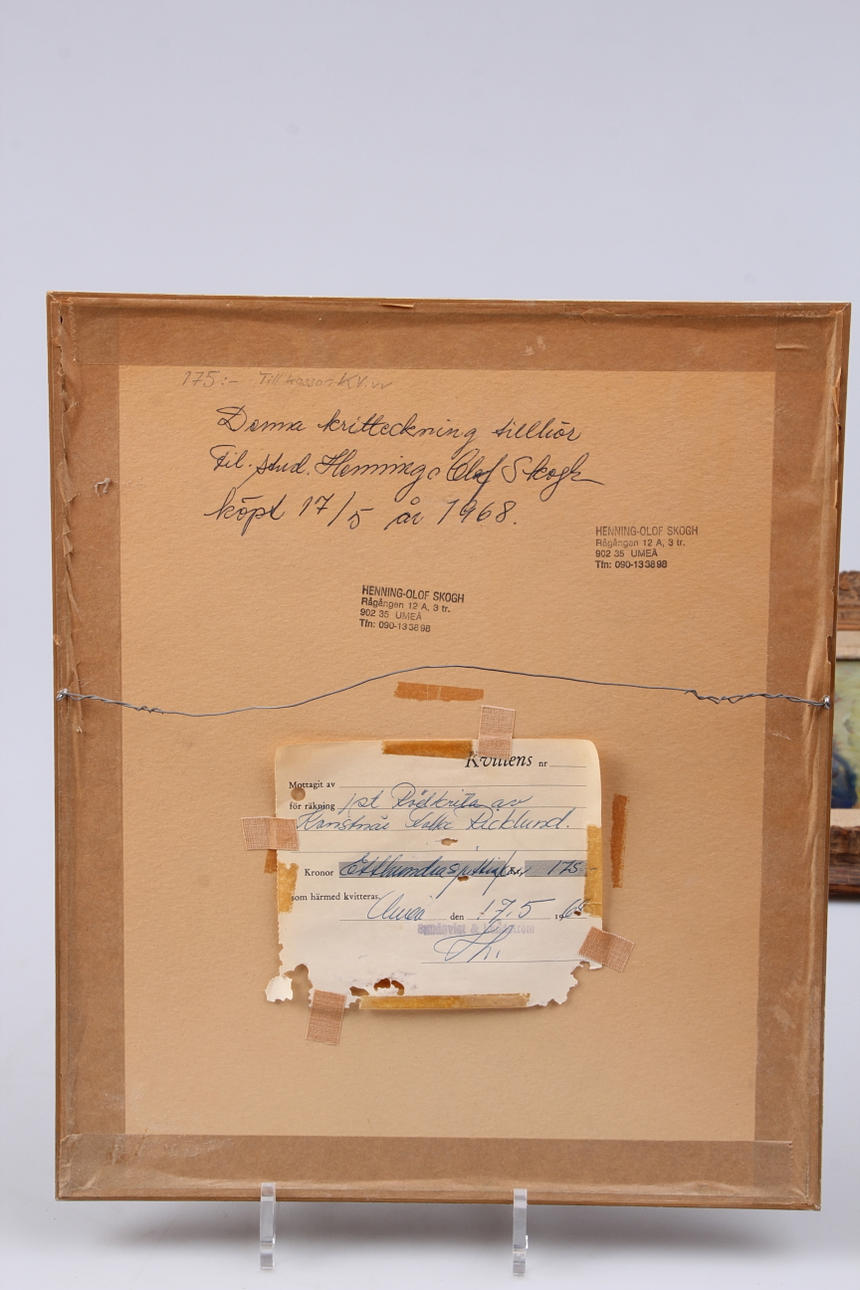 175:- Till kassan KV.
Denna kritteckning tillhör
Fil. stud. Henning-Olof Skogh
köpt 17/5 år 1968.
HENNING-OLOF SKOGH
Rågången 12 A, 3 tr.
902 35 UMEÅ
Tfn: 090-13 38 98
HENNING-OLOF SKOGH
Rågången 12 A, 3 tr.
902 35 UMEÅ
Tfn: 090-13 38 98
Kvittens nr
Mottagit av
för räkning 1 st Rödkrita av
Konstnär Folke Ricklund.
Kronor Etthundrasjuttiofem Kr. 175:-
som härmed kvitteras.
Umeå den 17.5 19 68
Sundqvist &